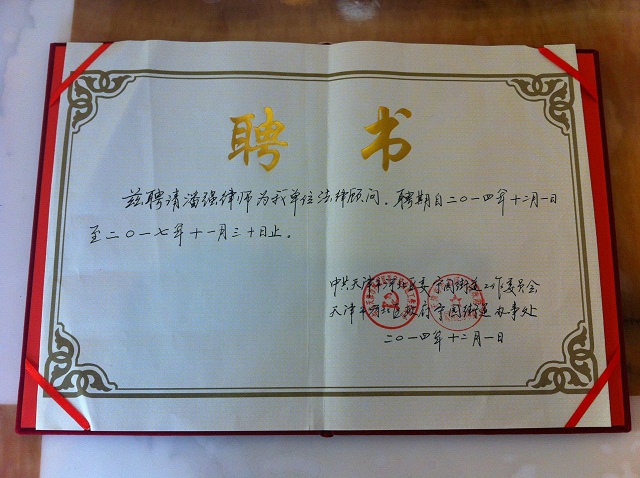 聘书
兹聘请潘强律师为我单位法律顾问。聘期自二〇一四年十二月一日
至二〇一七年十一月三十日止。
中共天津市河北区委宁园街道工作委员会
天津市河北区政府宁园街道办事处
二〇一四年十二月一日